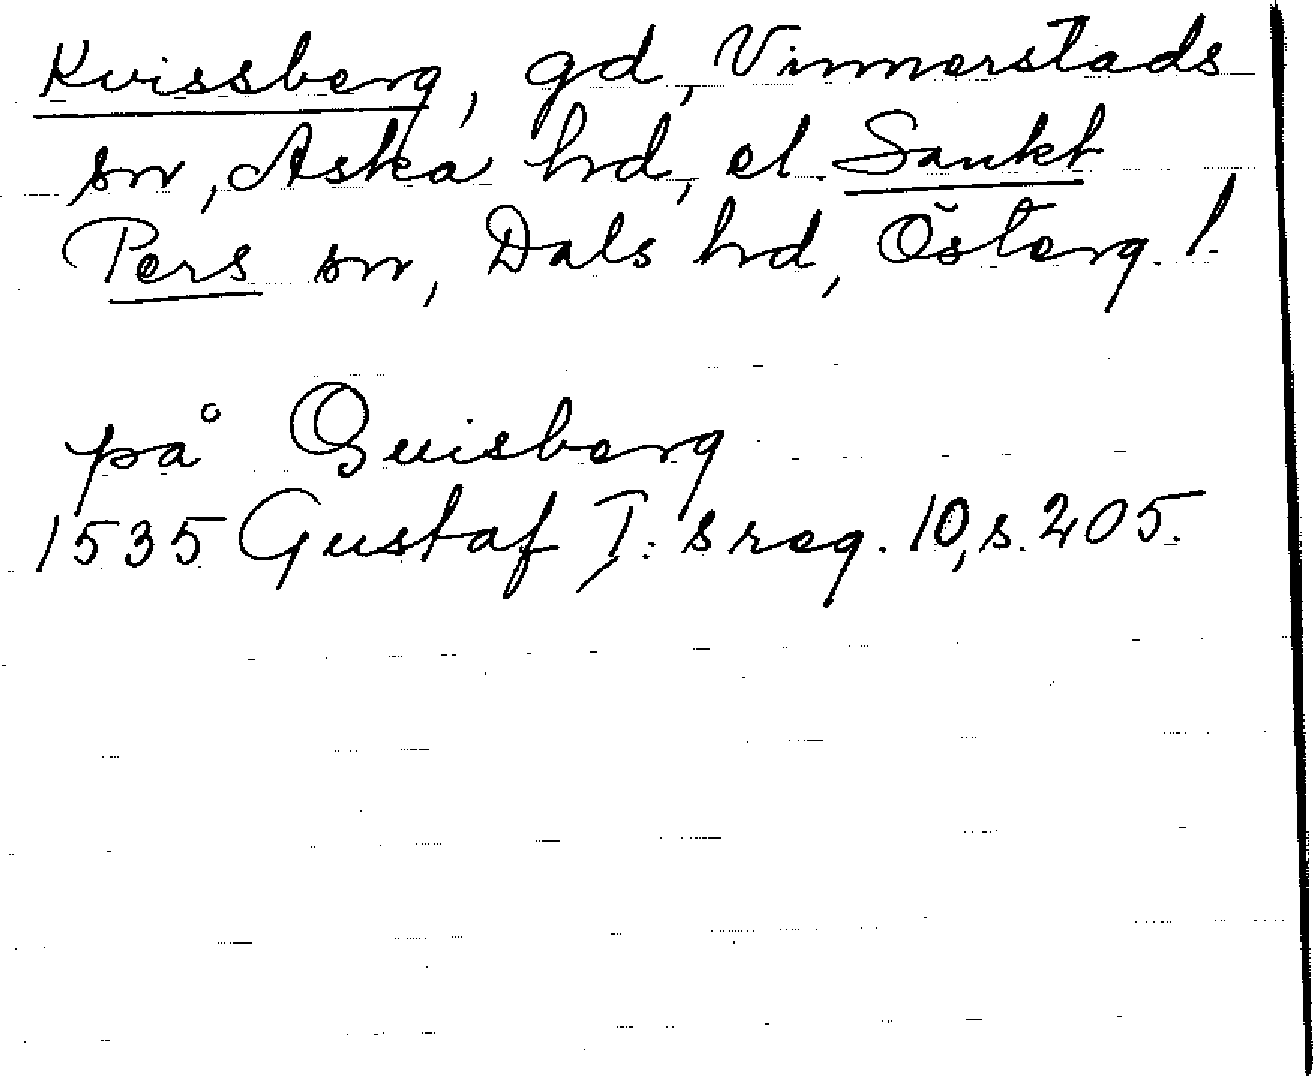 Kvissberg, gd, Vinnerstads
sn, Aska hd, el. Sankt
Pers sn, Dals hd, Österg. l.
på Quisberg
1535 Gustaf I:s reg. 10, s. 205.